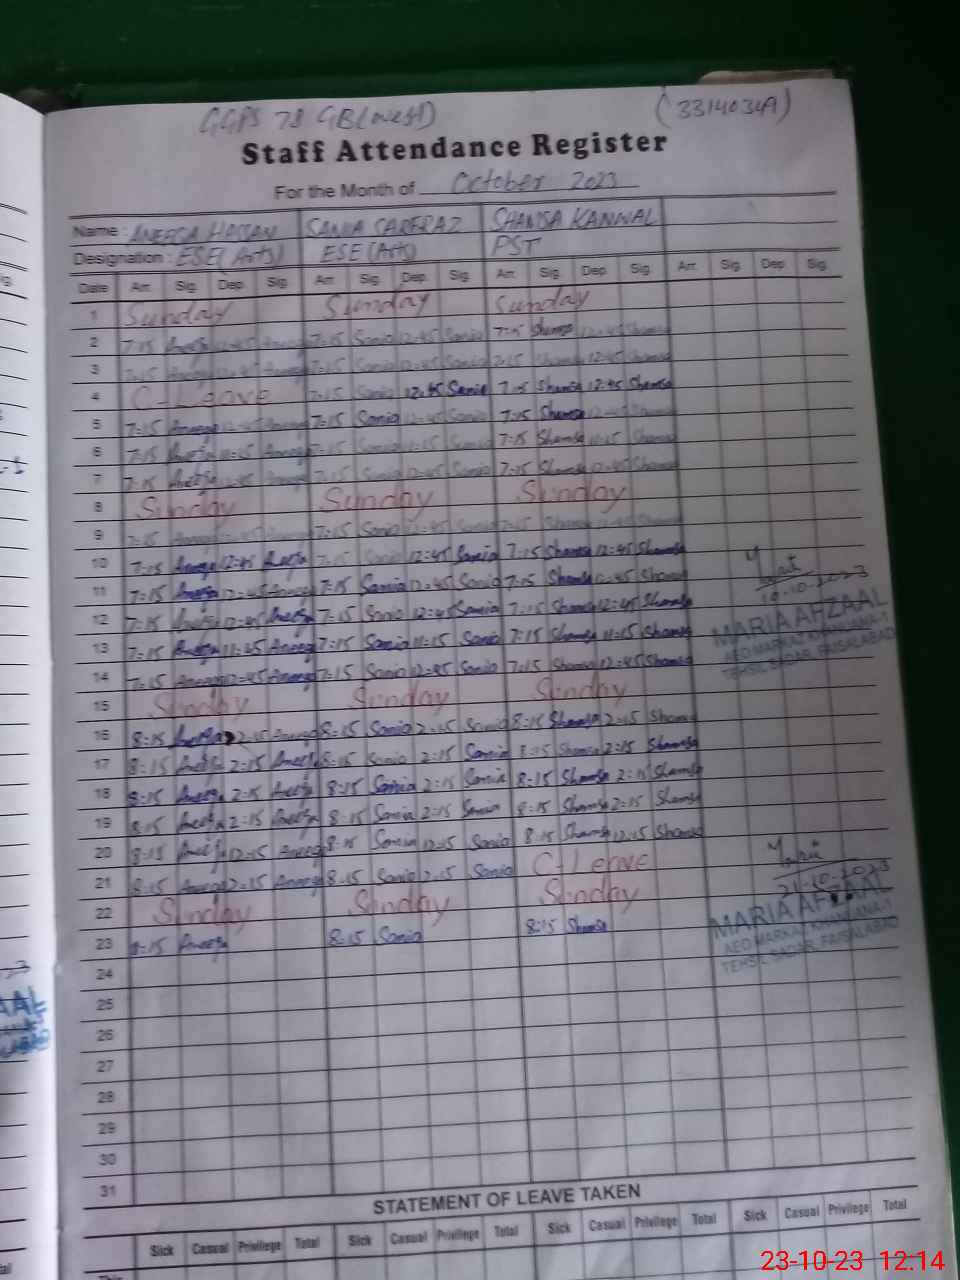 GGPS 78 GB (West) (33140349)
Staff Attendance Register
For the Month of October 2023
Name : ANEEQA HASSAN SANIA SARFRAZ SHAMSA KANWAL
Designation : ESE (Arts) ESE (Arts) PST
Date Arr. Sig. Dep. Sig. Arr. Sig. Dep. Sig. Arr. Sig. Dep. Sig. Arr. Sig. Dep. Sig.
1 Sunday Sunday Sunday
2 7:15 Aneeqa 12:45 Aneeqa 7:15 Sania 12:45 Sania 7:15 Shamsa 12:45 Shamsa
3 7:15 Aneeqa 12:45 Aneeqa 7:15 Sania 12:45 Sania 7:15 Shamsa 12:45 Shamsa
4 C-Leave 7:15 Sania 12:45 Sania 7:15 Shamsa 12:45 Shamsa
5 7:15 Aneeqa 12:45 Aneeqa 7:15 Sania 12:45 Sania 7:15 Shamsa 12:45 Shamsa
6 7:15 Aneeqa 11:15 Aneeqa 7:15 Sania 11:15 Sania 7:15 Shamsa 11:15 Shamsa
7 7:15 Aneeqa 12:45 Aneeqa 7:15 Sania 12:45 Sania 7:15 Shamsa 12:45 Shamsa
8 Sunday Sunday Sunday
9 7:15 Aneeqa 12:45 Aneeqa 7:15 Sania 12:45 Sania 7:15 Shamsa 12:45 Shamsa
10 7:15 Aneeqa 12:45 Aneeqa 7:15 Sania 12:45 Sania 7:15 Shamsa 12:45 Shamsa
11 7:15 Aneeqa 12:45 Aneeqa 7:15 Sania 12:45 Sania 7:15 Shamsa 12:45 Shamsa
10-10-2023
12 7:15 Aneeqa 12:45 Aneeqa 7:15 Sania 12:45 Sania 7:15 Shamsa 12:45 Shamsa
MARIA AFZAAL
13 7:15 Aneeqa 11:45 Aneeqa 7:15 Sania 11:15 Sania 7:15 Shamsa 11:15 Shamsa
AEO MARKAZ KHANUANA-1
14 7:15 Aneeqa 12:45 Aneeqa 7:15 Sania 12:45 Sania 7:15 Shamsa 12:45 Shamsa
TEHSIL SADAR, FAISALABAD
15 Sunday Sunday Sunday
16 8:15 Aneeqa 2:15 Aneeqa 8:15 Sania 2:15 Sania 8:15 Shamsa 2:15 Shamsa
17 8:15 Aneeqa 2:15 Aneeqa 8:15 Sania 2:15 Sania 8:15 Shamsa 2:15 Shamsa
18 8:15 Aneeqa 2:15 Aneeqa 8:15 Sania 2:15 Sania 8:15 Shamsa 2:15 Shamsa
19 8:15 Aneeqa 2:15 Aneeqa 8:15 Sania 2:15 Sania 8:15 Shamsa 2:15 Shamsa
20 8:15 Aneeqa 12:15 Aneeqa 8:15 Sania 12:15 Sania 8:15 Shamsa 12:15 Shamsa
21 8:15 Aneeqa 2:15 Aneeqa 8:15 Sania 2:15 Sania C-Leave
21-10-2023
22 Sunday Sunday Sunday
MARIA AFZAAL
23 8:15 Aneeqa 8:15 Sania 8:15 Shamsa
AEO MARKAZ KHANUANA-1
TEHSIL SADAR, FAISALABAD
24
25
26
27
28
29
30
31
STATEMENT OF LEAVE TAKEN
Sick Casual Privilege Total Sick Casual Privilege Total Sick Casual Privilege Total Sick Casual Privilege Total
23-10-23 12:14